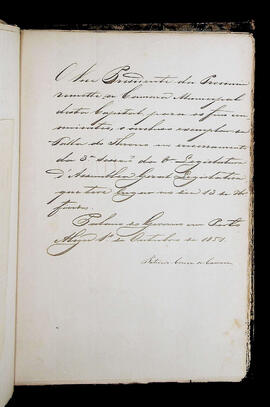 O Vice Presidente da Provincia
remette á Camara Municipal
desta Capital para os fins con
venientes, o incluso exemplar da
Falla do Throno no encerramento
da 3ª Sessão da 8ª Legislatura
d'Assembléa Geral Legislativa
que teve lugar no dia 13 de
Palacio do Governo em Porto
Alegre 1º de Outubro de 1851.
Patricio Correa da Camara